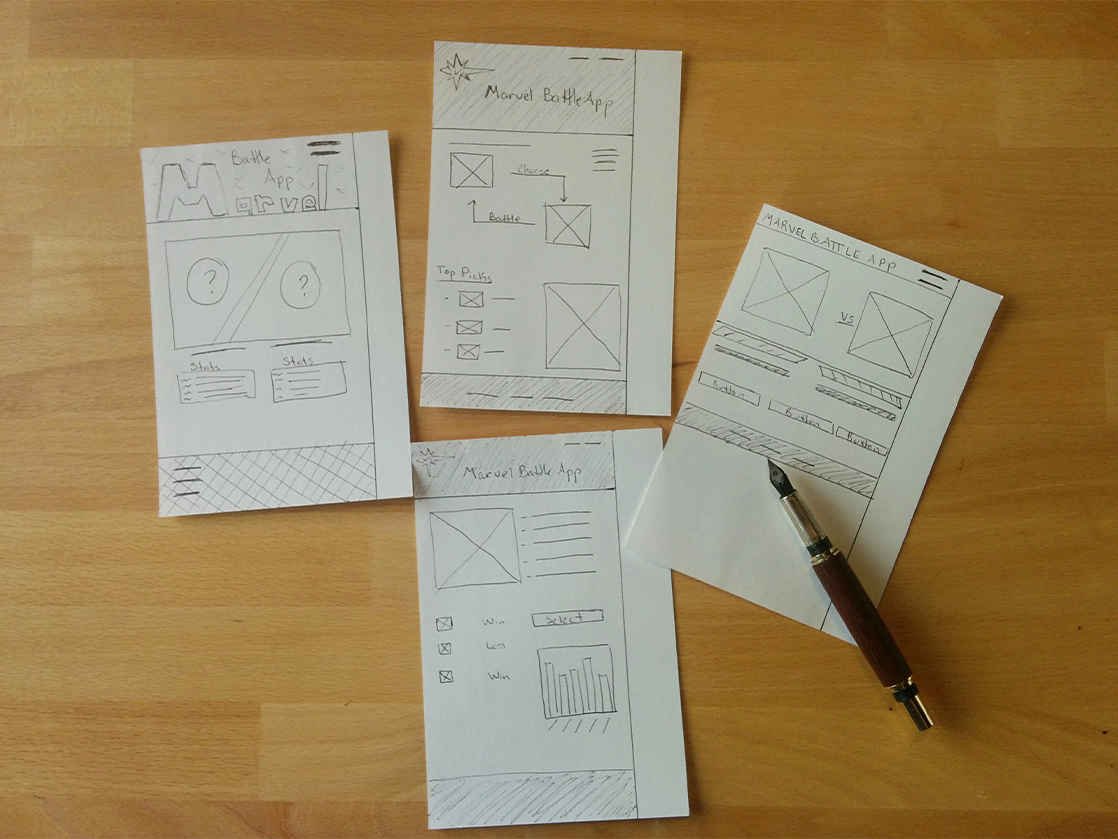 Battle
App
Marvel
?
?
Stats
Stats
Marvel Battle App
Choose
Battle
Top Picks
MARVEL BATTLE APP
VS
Button
Button
Button
Marvel Battle App
Win
Select
Loss
Win